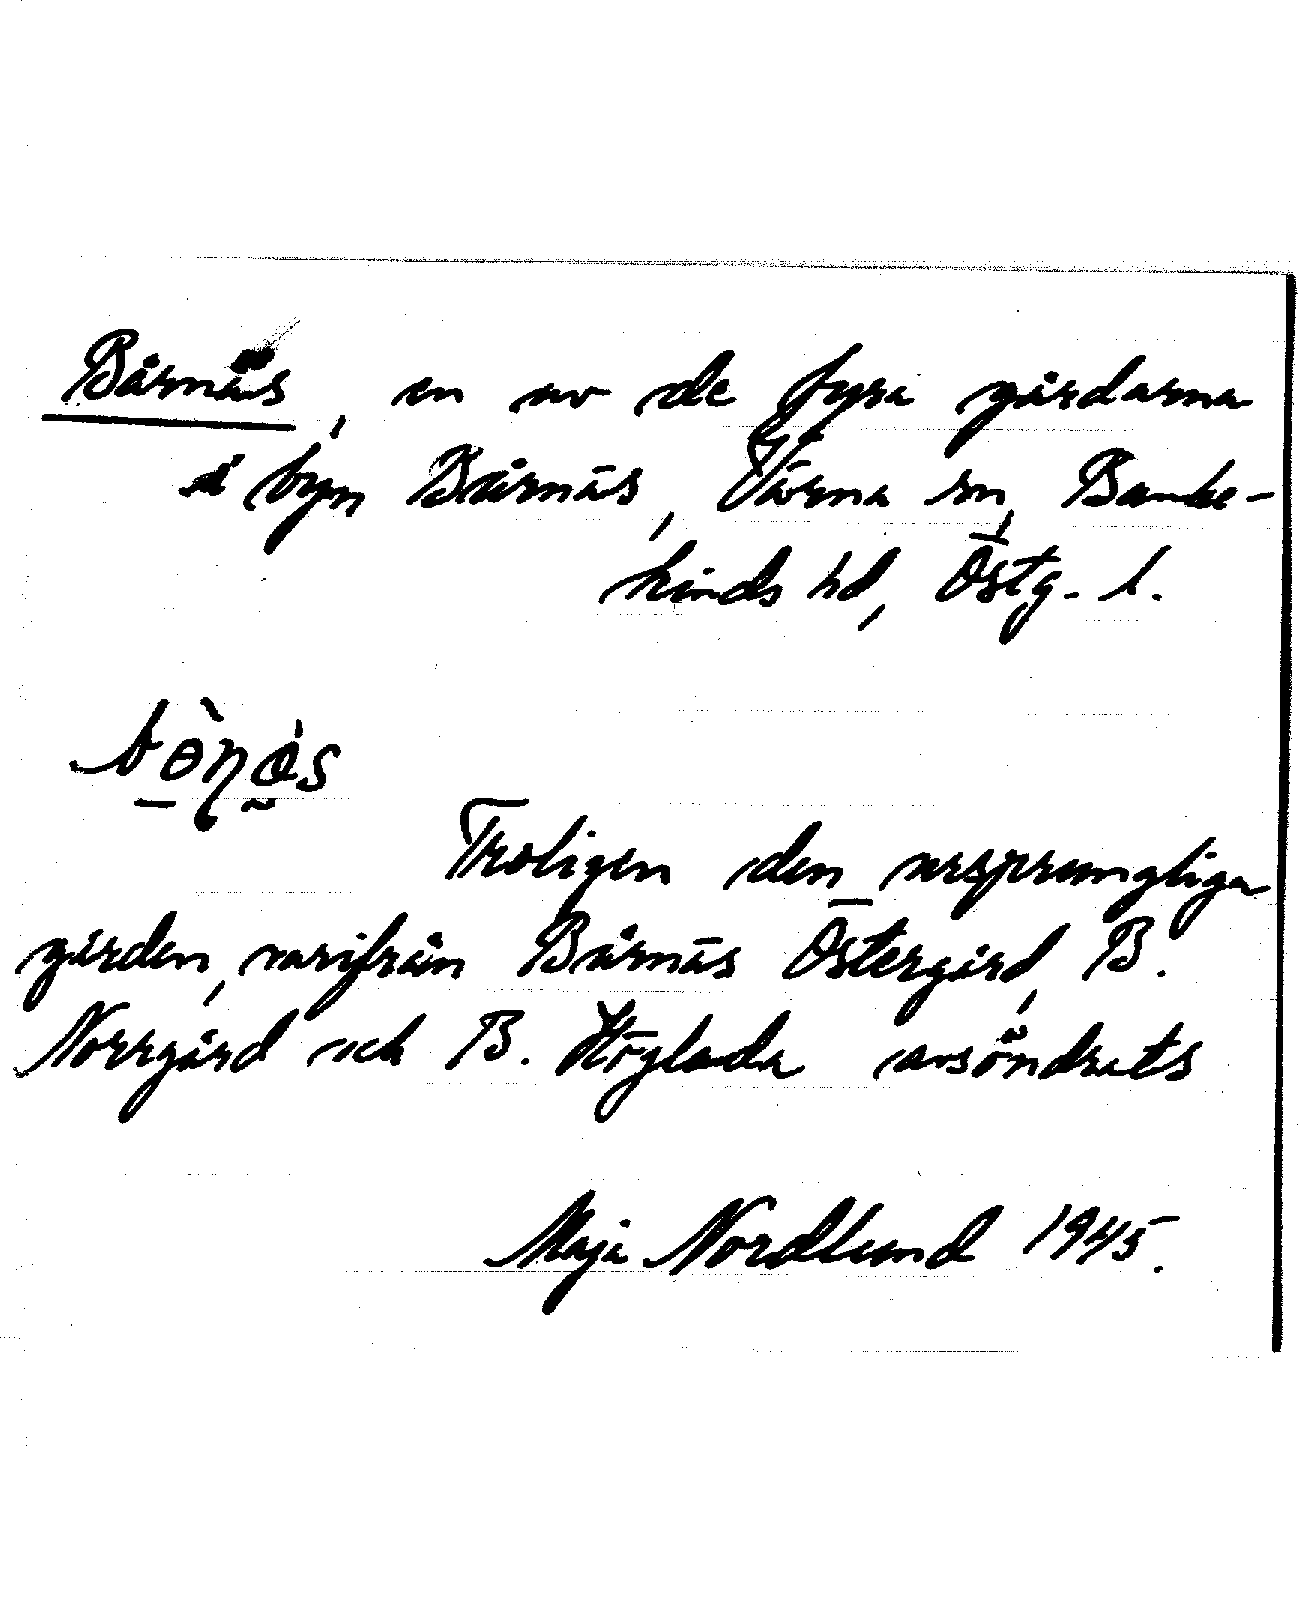 Bårnäs, en av de fyra gårdarna
i byn Bårnäs, Vårna sn, Banke-
kinds hd, Östg. l.
Troligen den ursprungliga
gården, varifrån Bårnäs Östergård, B.
Norrgård och B. Höglada avsöndrats
Maja Nordlund 1945.